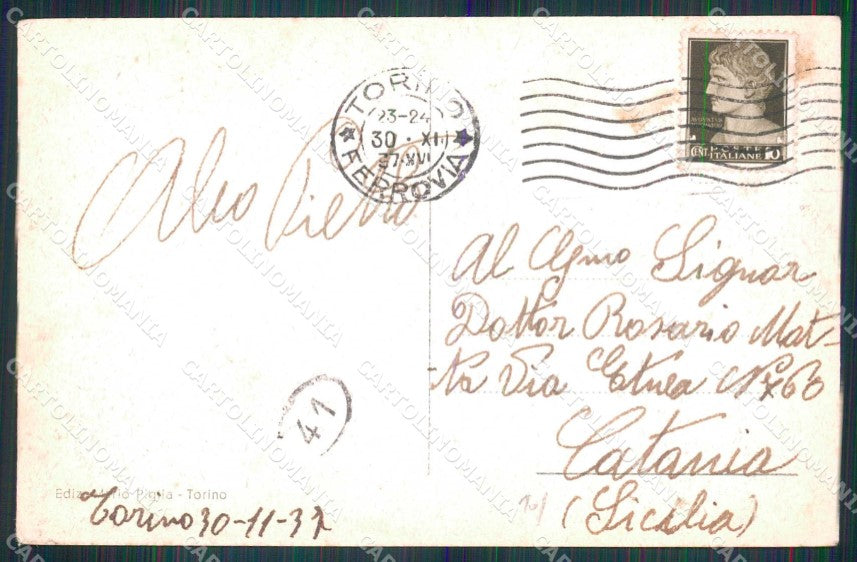 TORINO
23-24
30 · XII
37·XVI
FERROVIA
POSTE
CENT. ITALIANE 10
Al Egmo Signor
Dottor Rosario Mat-
ta Via Etnea No
Catania
(Sicilia)
41
Ediz. Piglia - Torino
Torino 30-11-37
CARTOLINOMANIA